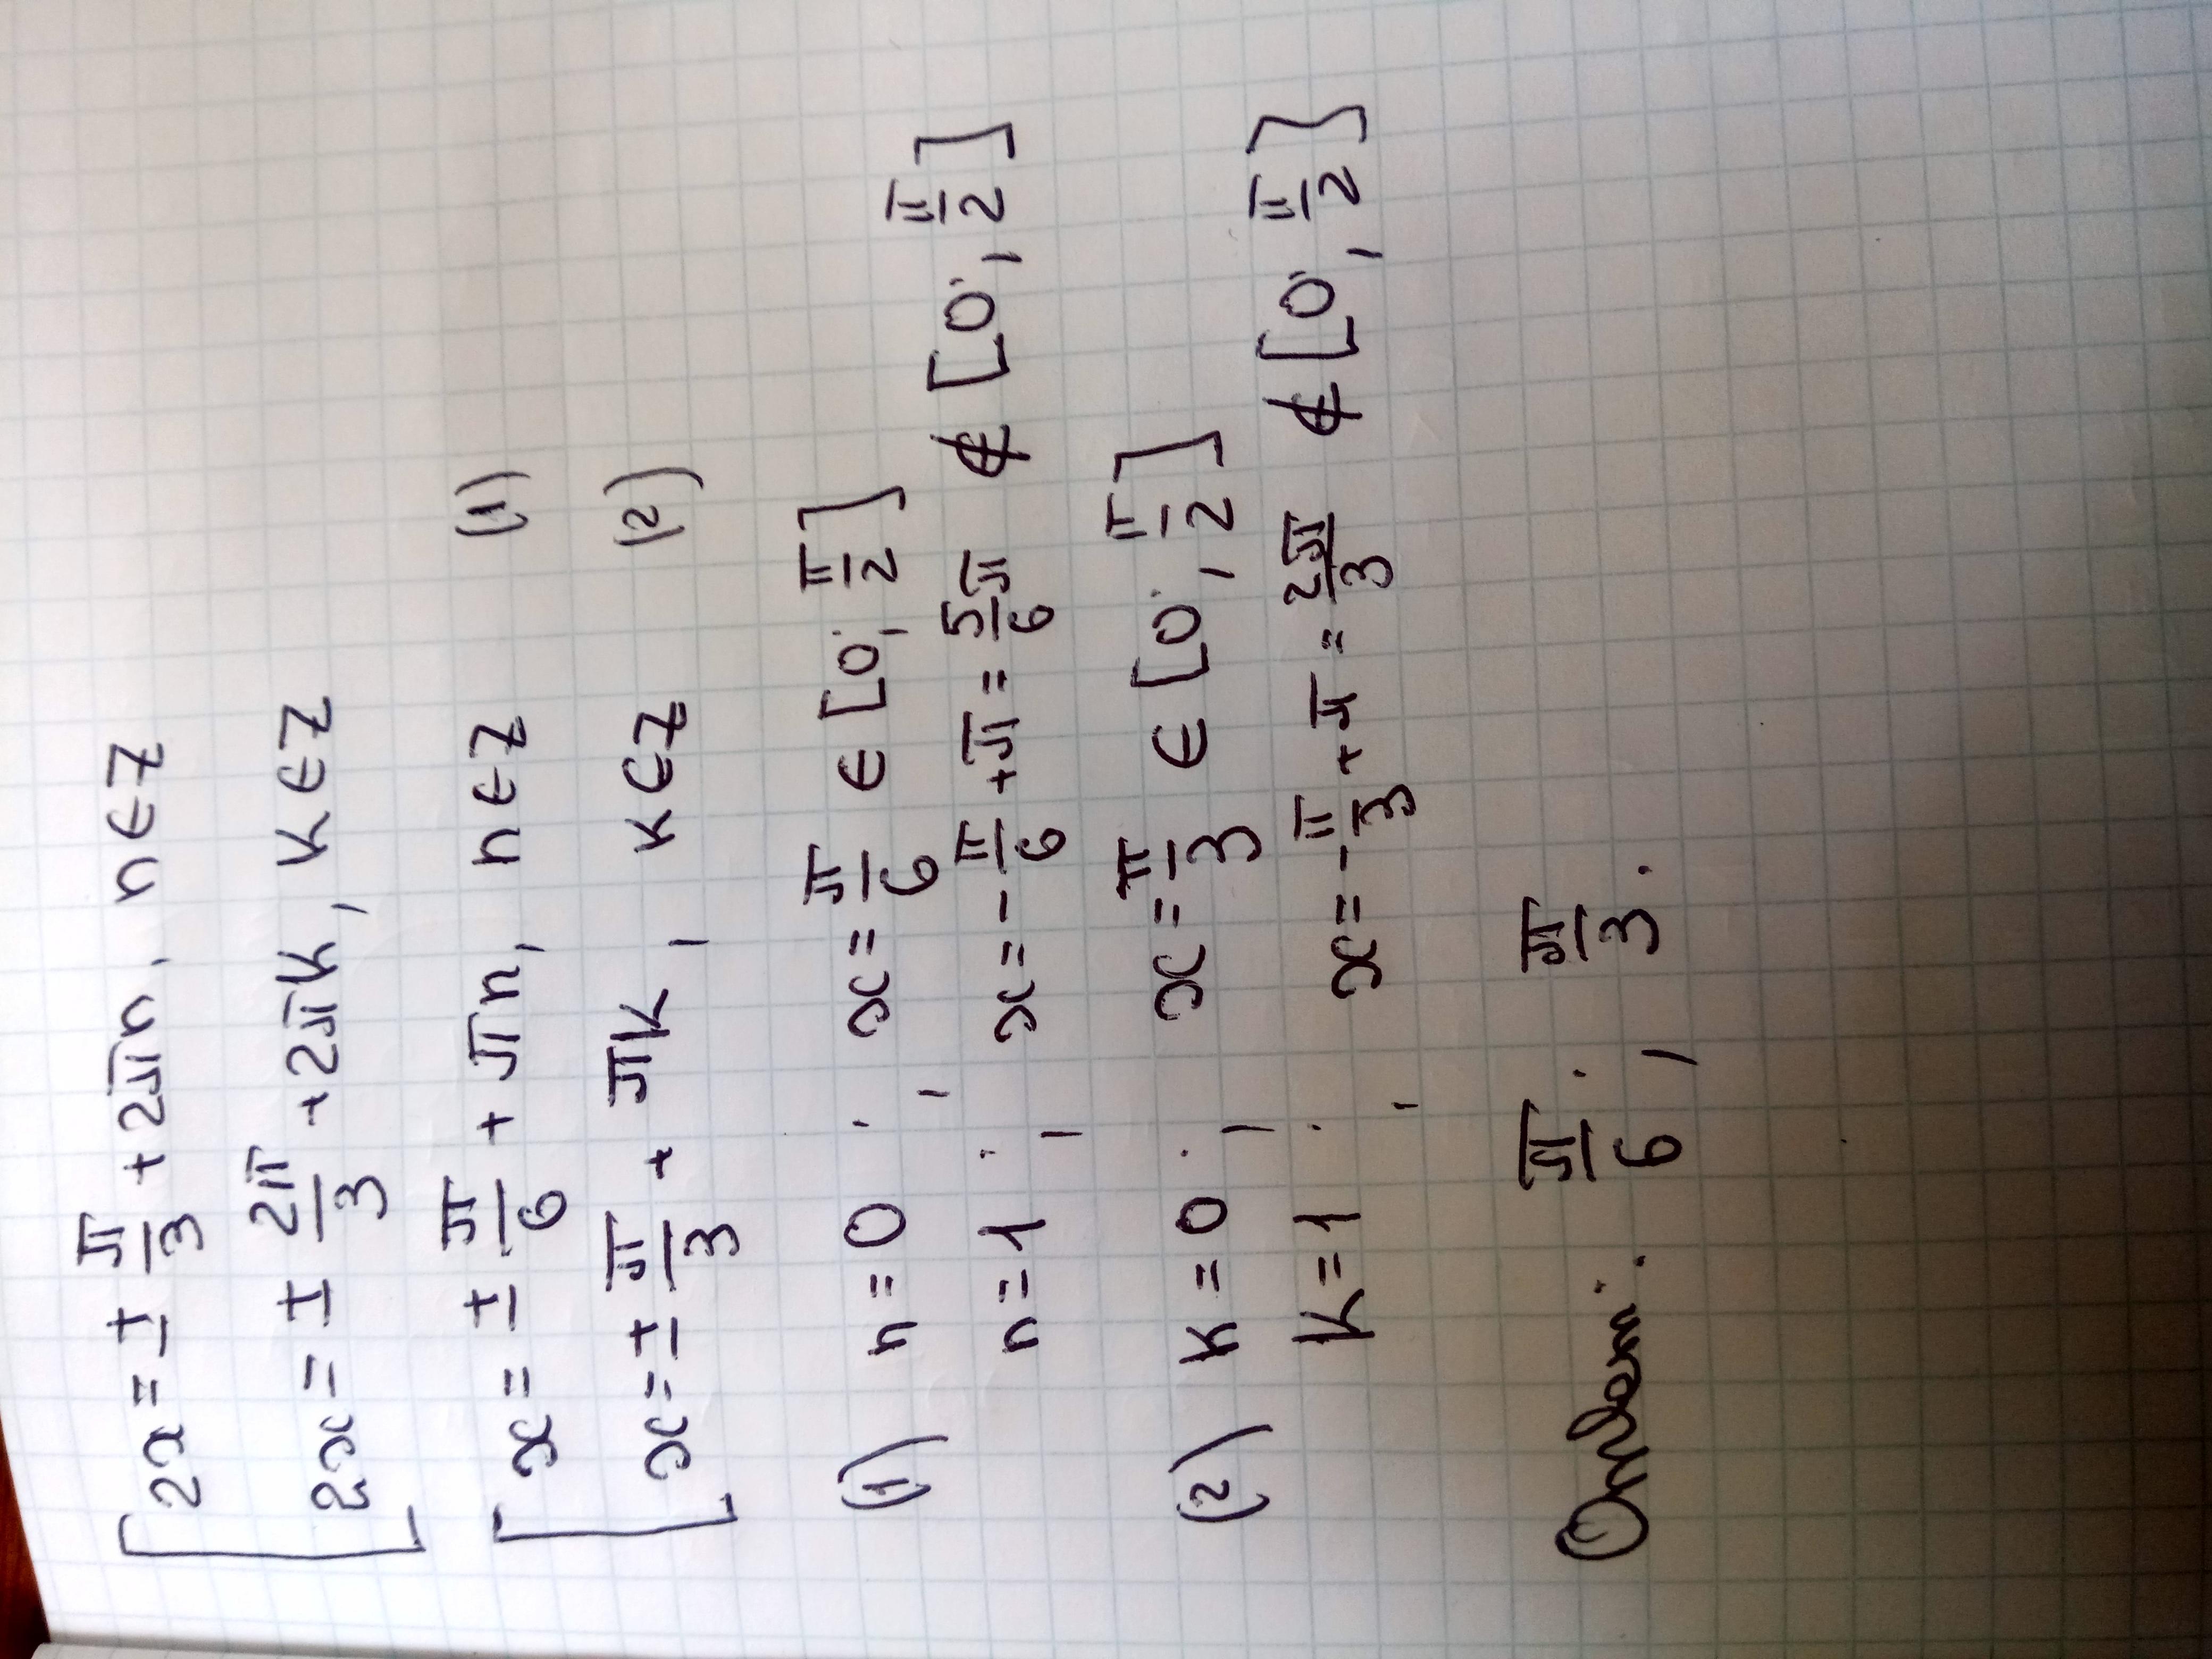 [ 2x = ± π/3 + 2πn, n ∈ Z
2x = ± 2π/3 + 2πk, k ∈ Z
[ x = ± π/6 + πn, n ∈ Z (1)
x = ± π/3 + πk, k ∈ Z (2)
(1) n = 0; x = π/6 ∈ [0; π/2]
n = 1; x = - π/6 + π = 5/6 π ∉ [0; π/2]
(2) k = 0; x = π/3 ∈ [0; π/2]
k = 1; x = - π/3 + π = 2π/3 ∉ [0; π/2]
Ответ: π/6; π/3.